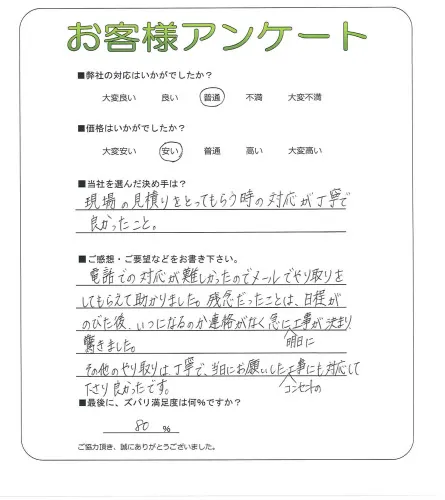 お客様アンケート
■弊社の対応はいかがでしたか？
大変良い 良い 普通 不満 大変不満
■価格はいかがでしたか？
大変安い 安い 普通 高い 大変高い
■当社を選んだ決め手は？
現場の見積りをとってもらう時の対応が丁寧で
良かったこと。
■ご感想・ご要望などをお書き下さい。
電話での対応が難しかったのでメールでやり取りを
してもらえて助かりました。残念だったことは、日程が
のびた後、いつになるのか連絡がなく急に工事が決まり
明日に
驚きました。
その他のやり取りは丁寧で、当日にお願いした工事にも対応して
コンセントの
下さり良かったです。
■最後に、ズバリ満足度は何％ですか？
80 ％
ご協力頂き、誠にありがとうございました。